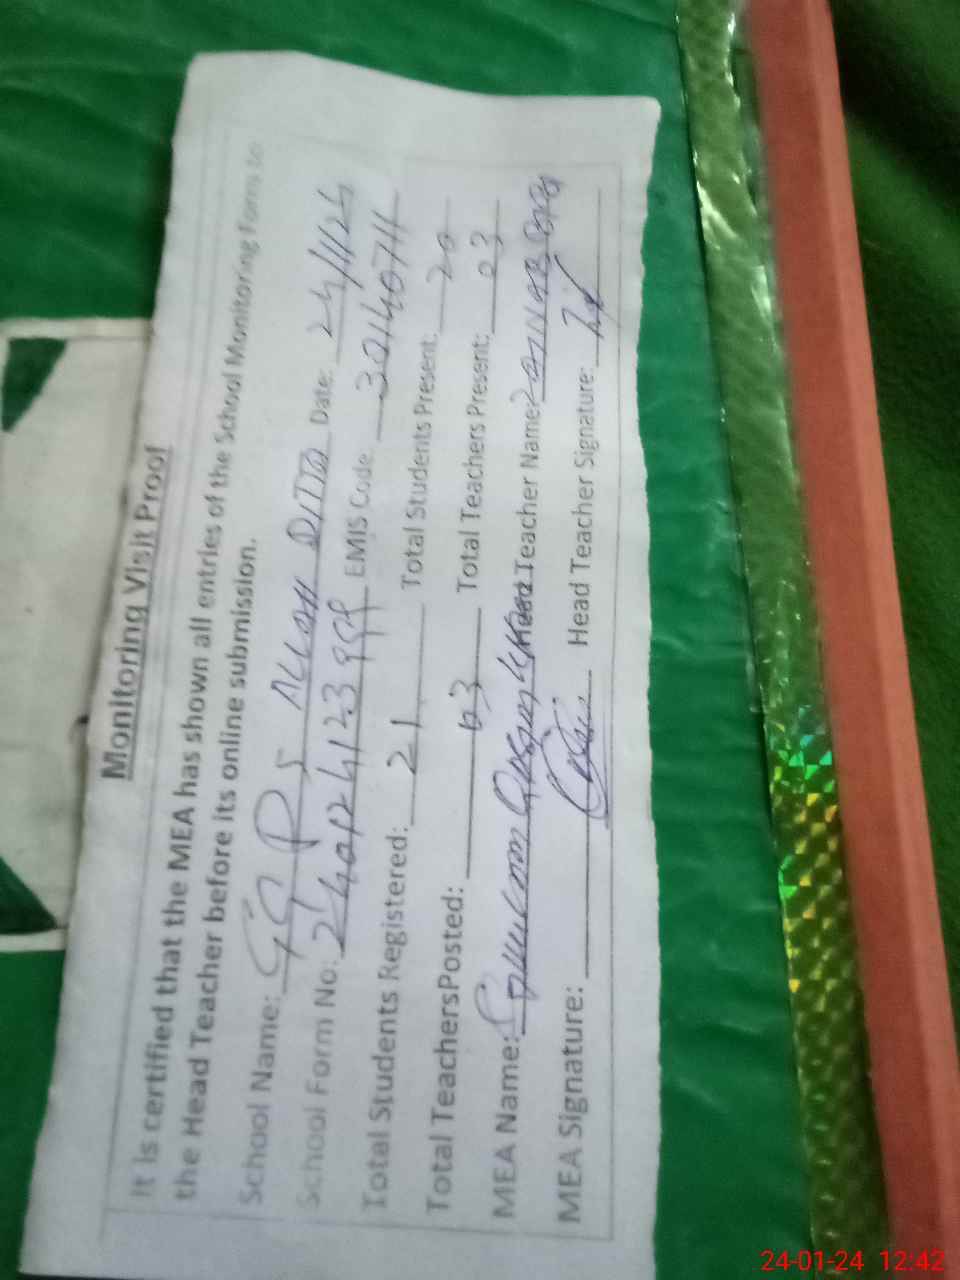 Monitoring Visit Proof
It is certified that the MEA has shown all entries of the School Monitoring Form to
the Head Teacher before its online submission.
School Name: GPS ALLAH DITTA Date: 24/1/24
School Form No: EMIS Code 30140711
Total Students Registered: 21 Total Students Present: 20
Total TeachersPosted: 03 Total Teachers Present: 03
MEA Name: Head Teacher Name:
MEA Signature: Head Teacher Signature:
24-01-24 12:42